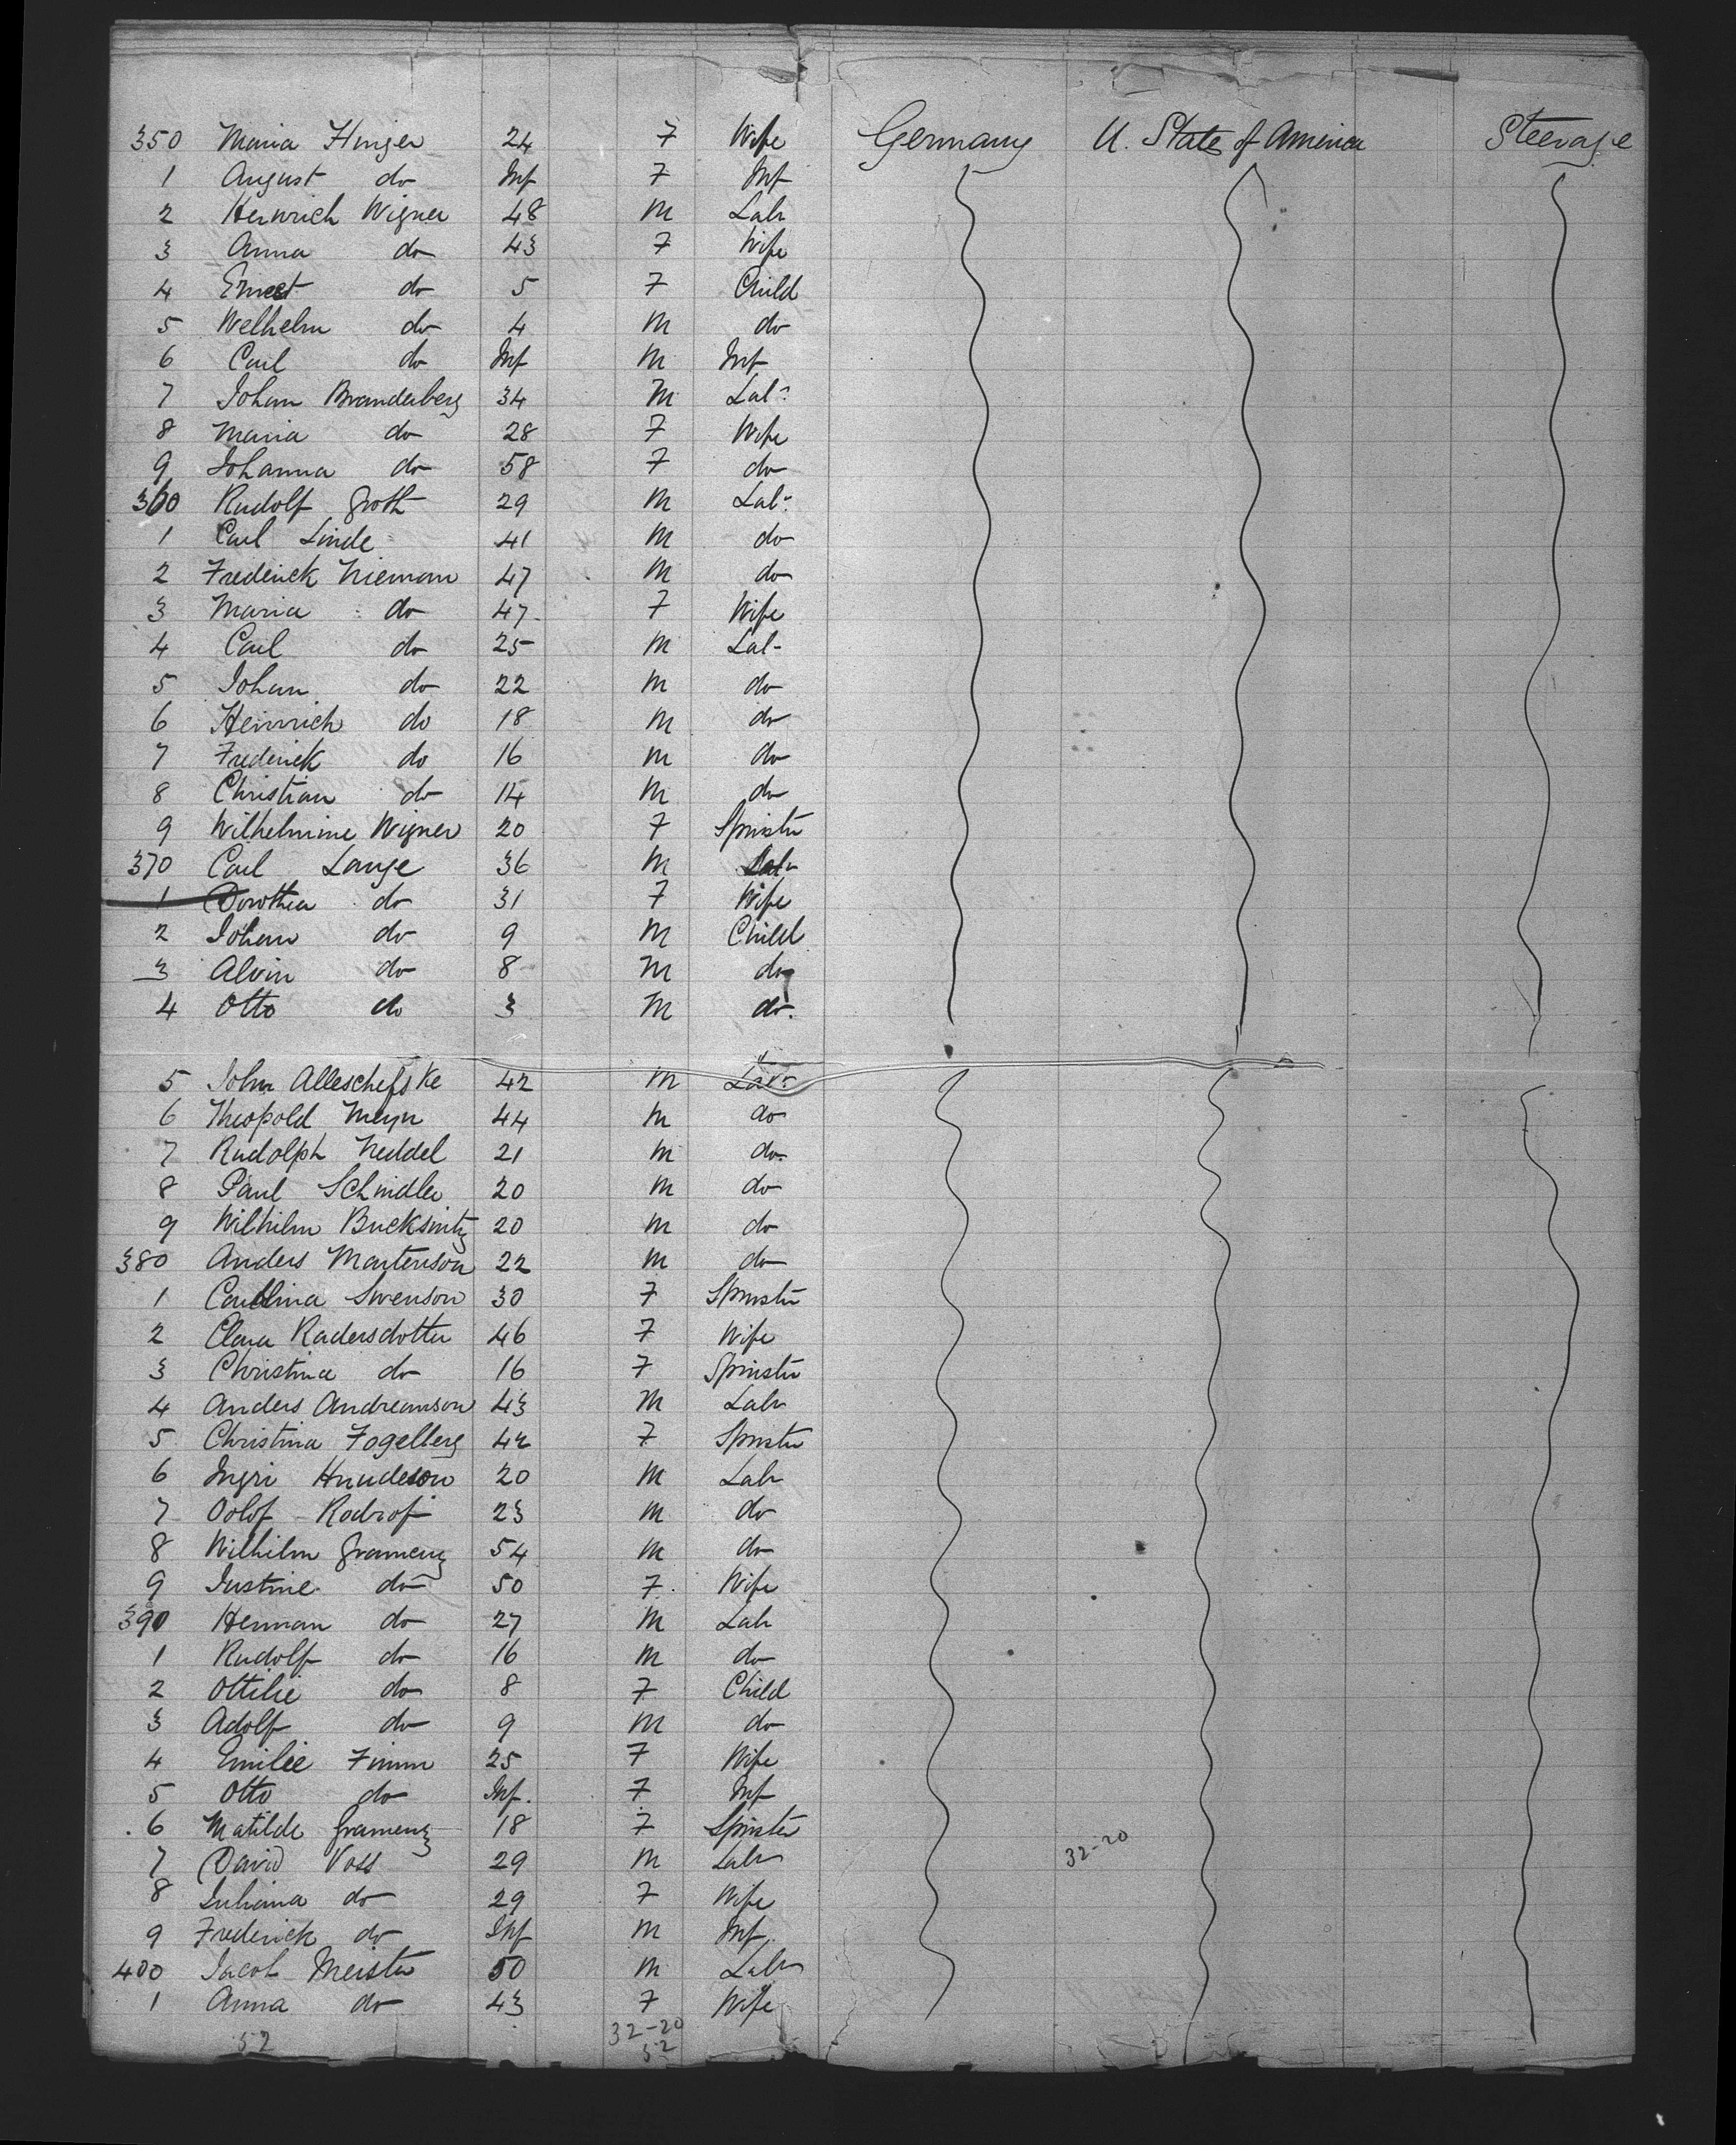 350 Maria Hinger 24 F Wife Germany U. States of America Steerage
1 August do Inf F Inf
2 Heinrich Wigner 48 M Labr
3 Anna do 43 F Wife
4 Ernest do 5 F Child
5 Welhelm do 4 M do
6 Carl do Inf M Inf
7 Johan Branderberg 34 M Labr
8 Maria do 28 F Wife
9 Johanna do 58 F do
360 Rudolf Groth 29 M Labr
1 Carl Linde 41 M do
2 Frederick Nieman 47 M do
3 Maria do 47 F Wife
4 Carl do 25 M Lab
5 Johan do 22 M do
6 Heinrich do 18 M do
7 Frederick do 16 M do
8 Christian do 14 M do
9 Wilhelmine Wigner 20 F Spinster
370 Carl Lange 36 M Labr
1 Dorothea do 31 F Wife
2 Johan do 9 M Child
3 Alvin do 8 M do
4 Otto do 3 M do
5 John Alleschefske 42 M Labr
6 Theopold Meyn 44 M do
7 Rudolph Neddel 21 M do
8 Paul Schindler 20 M do
9 Wilhilm Bucksnitz 20 M do
380 Anders Martenson 22 M do
1 Carolina Swenson 30 F Spinster
2 Clara Radersdotter 46 F Wife
3 Christina do 16 F Spinster
4 Anders Andreanson 43 M Labr
5 Christina Fogelberg 42 F Spinster
6 Ingri 20 M Labr
7 Oolof Rodrof 23 M do
8 Wilhilm Gramenz 54 M do
9 Justine do 50 F Wife
390 Herman do 27 M Labr
1 Rudolf do 16 M do
2 Ottilie do 8 F Child
3 Adolf do 9 M do
4 Emilie Timm 25 F Wife
5 Otto do Inf. F Inf
6 Matilde Gramenz 18 F Spinster
7 David Voss 29 M Labr 32-20
8 Juliana do 29 F Wife
9 Frederick do Inf M Inf
400 Jacob Meister 50 M Labr
1 Anna do 43 F Wife
52 32-20
52